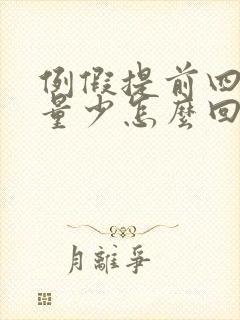 例假提前四
量少怎麼回
月離爭